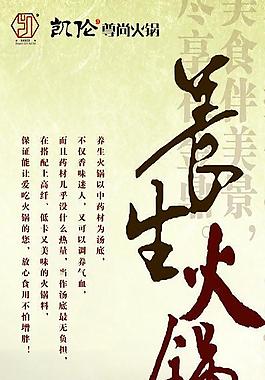 凯伦尊尚火锅
美食伴美景，
尽享
养生火锅
养生火锅以中药材为汤底，
不仅香味迷人，又可以调养气血，
而且药材几乎没什么热量，当作汤底最无负担，
在搭配上高纤、低卡又美味的火锅料，
保证能让爱吃火锅的您，放心食用不怕增胖！